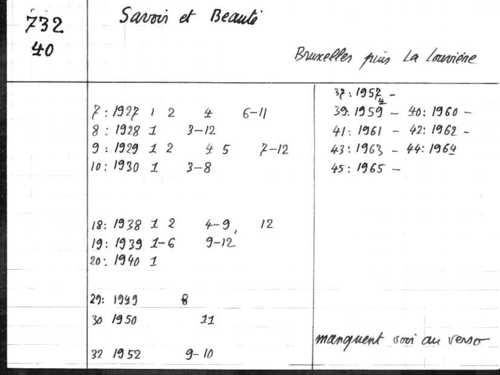 732
40
Savoir et Beauté
Bruxelles puis La Louvière
7: 1927 1 2 4 6-11
8: 1928 1 3-12
9: 1929 1 2 4 5 7-12
10: 1930 1 3-8
18: 1938 1 2 4-9, 12
19: 1939 1-6 9-12
20: 1940 1
29: 1949 8
30 1950 11
32 1952 9-10
37: 1957 -
39: 1959 - 40: 1960 -
41: 1961 - 42: 1962 -
43: 1963 - 44: 1964
45: 1965 -
manquent voir au verso